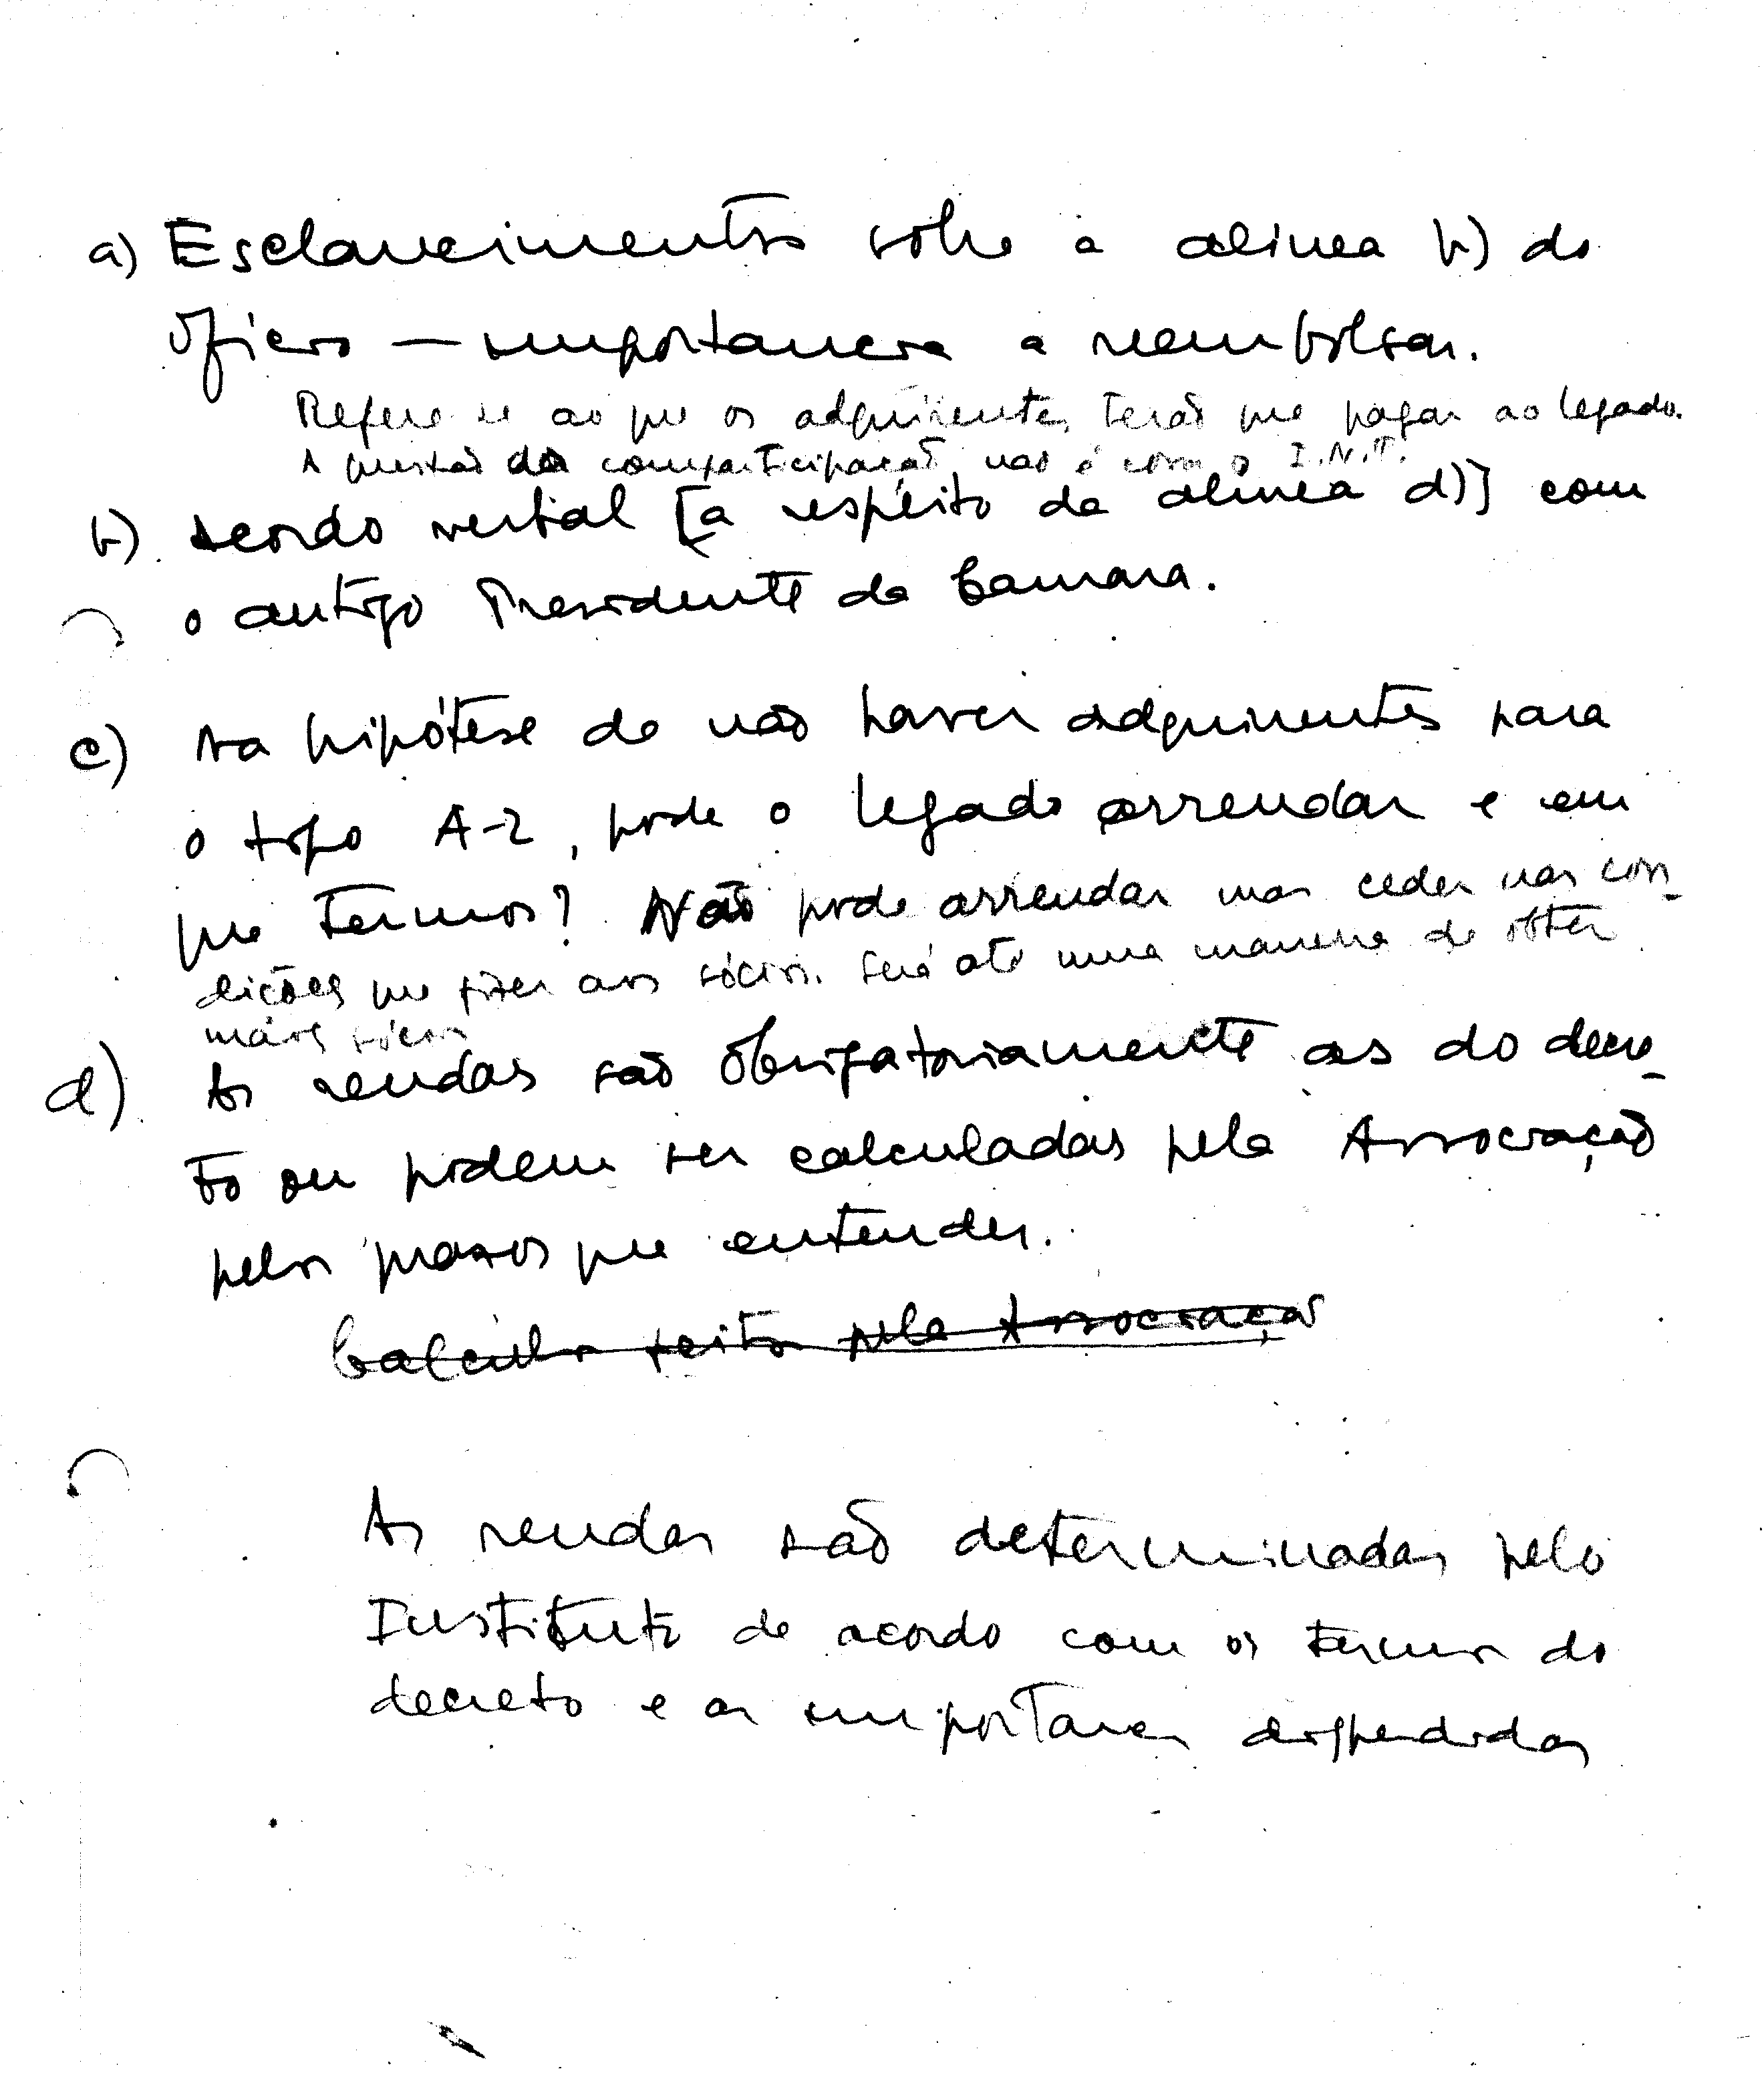 a) Esclarecimentos sobre a alinea b) do
Oficio — importancia a reembolsar.
Refere-se ao que os adquirentes terão que pagar ao legado.
A questão da comparticipação não é com o I.N.T.
b) Acordo verbal [a respeito da alinea d)] com
o antigo Presidente da Camara.
c) Na hipótese de não haver adquirentes para
o tipo A-2, pode o legado arrendar e em
que termos? Não pode arrendar mas ceder nas con-
dições que fizer aos sócios. Será até uma maneira de obter
mais sócios
d) As rendas são obrigatoriamente as do decre-
to ou podem ser calculadas pela Associação
pelos prazos que entender.
Calculos feitos pela Associação
As rendas são determinadas pelo
Instituto de acordo com os termos do
decreto e as importancias despendidas